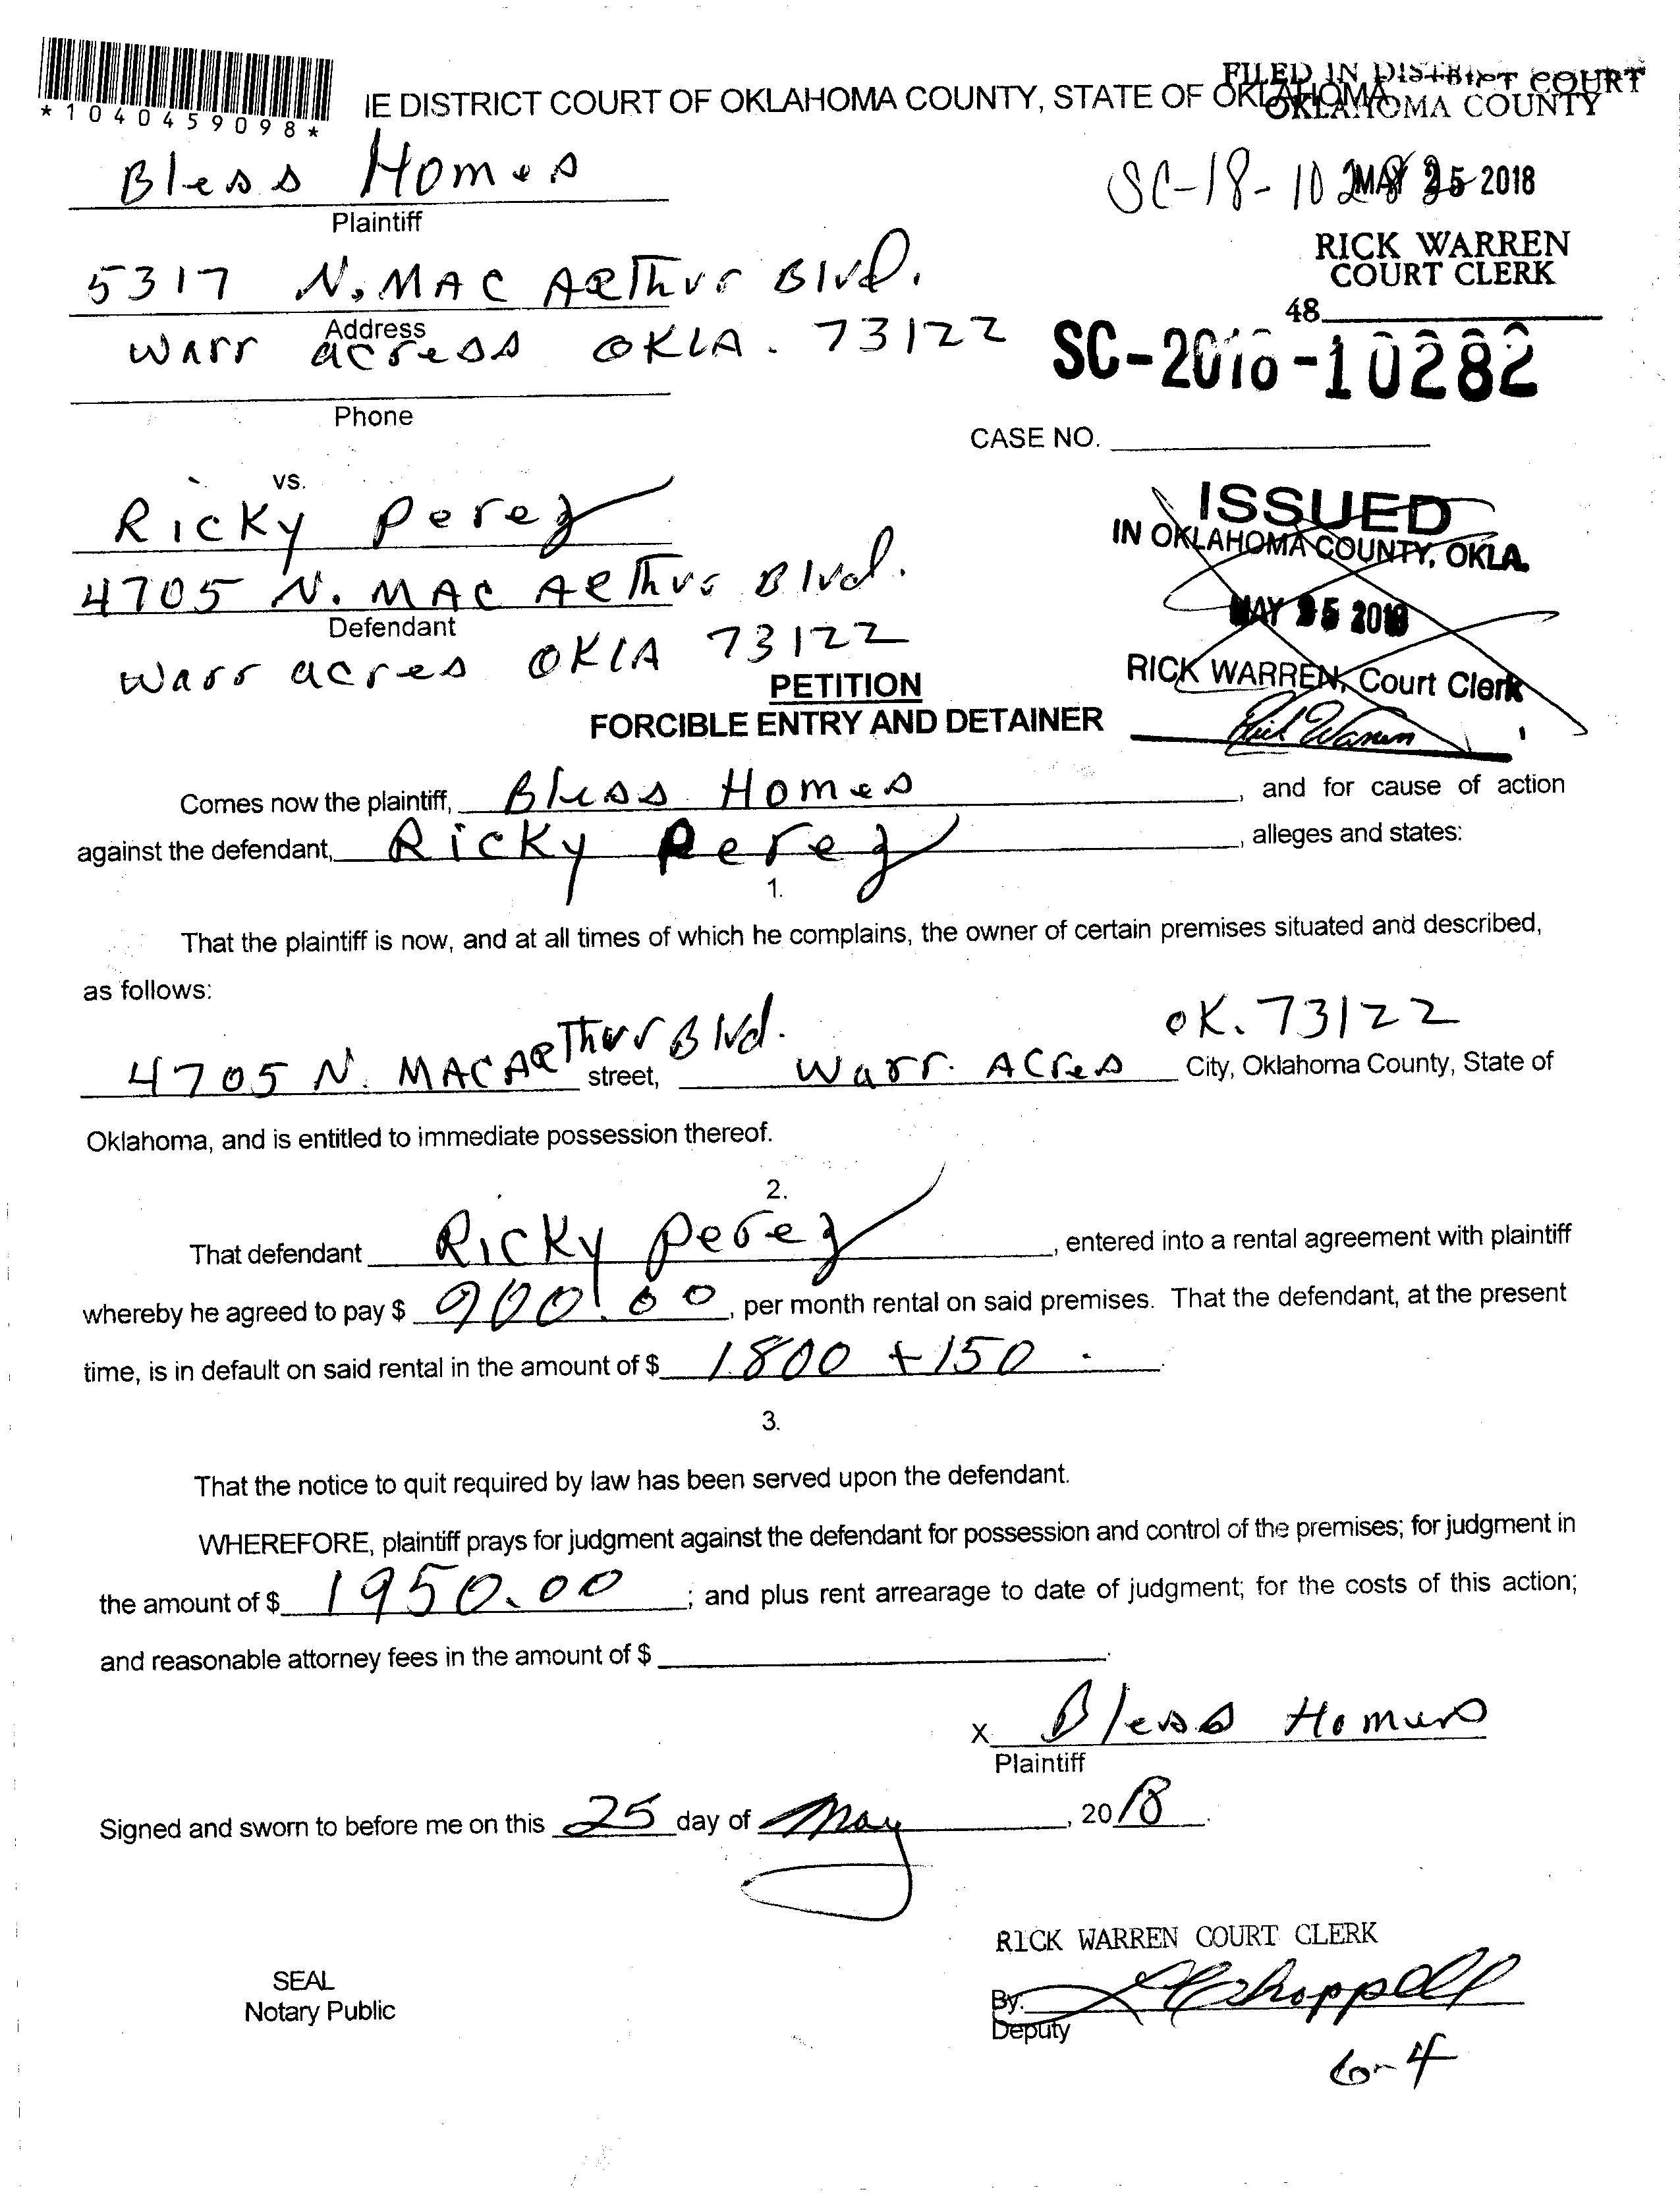 *1040459098*
IE DISTRICT COURT OF OKLAHOMA COUNTY, STATE OF OKLAHOMA
FILED IN DISTRICT COURT
OKLAHOMA COUNTY
Bless Homes
Plaintiff
SC-18-10282
MAY 25 2018
5317 N. MAC ARThur Blvd.
Address
RICK WARREN
COURT CLERK
48
Warr acress OKLA. 73122
SC-2018-10282
Phone
CASE NO.
vs.
Ricky Perez
4705 N. MAC ARThur Blvd.
Defendant
Warr acres OKLA 73122
ISSUED
IN OKLAHOMA COUNTY, OKLA.
MAY 25 2018
RICK WARREN, Court Clerk
Rick Warren
PETITION
FORCIBLE ENTRY AND DETAINER
Comes now the plaintiff, Bless Homes, and for cause of action
against the defendant, Ricky Perez, alleges and states:
1.
That the plaintiff is now, and at all times of which he complains, the owner of certain premises situated and described,
as follows:
4705 N. MACARThur Blvd. street, Warr. Acres OK. 73122 City, Oklahoma County, State of
Oklahoma, and is entitled to immediate possession thereof.
2.
That defendant Ricky Perez, entered into a rental agreement with plaintiff
whereby he agreed to pay $ 900.00, per month rental on said premises. That the defendant, at the present
time, is in default on said rental in the amount of $ 1800 + 150.
3.
That the notice to quit required by law has been served upon the defendant.
WHEREFORE, plaintiff prays for judgment against the defendant for possession and control of the premises; for judgment in
the amount of $ 1950.00; and plus rent arrearage to date of judgment; for the costs of this action;
and reasonable attorney fees in the amount of $.
X Bless Homes
Plaintiff
Signed and sworn to before me on this 25 day of May, 2018.
RICK WARREN COURT CLERK
SEAL
Notary Public
By:
Deputy
6-4